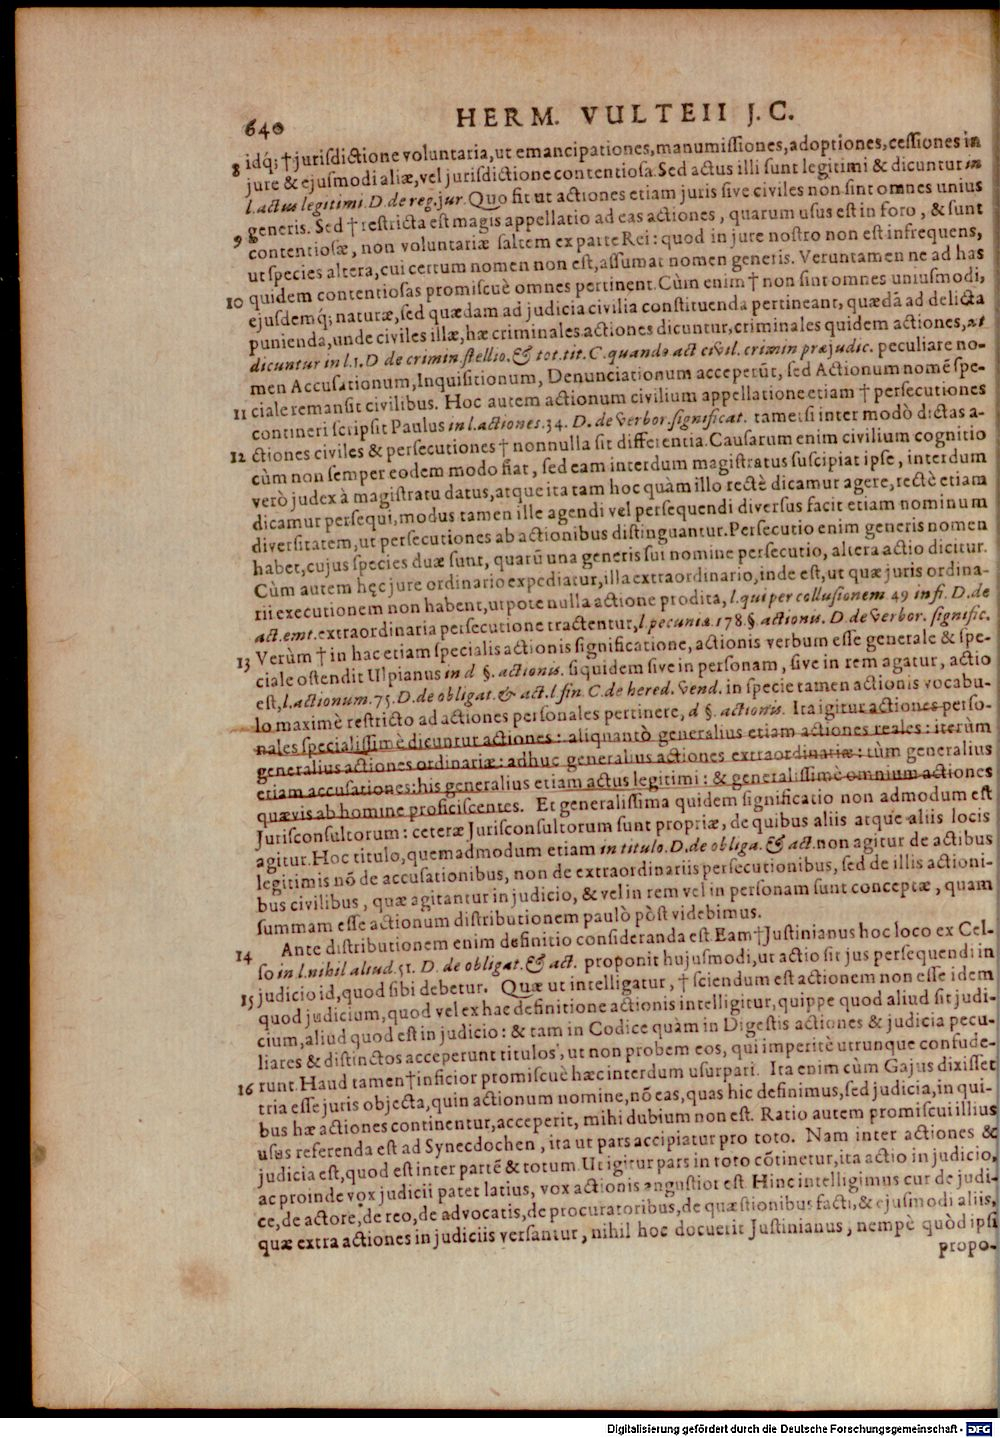 640 HERM. VULTEII J. C.
8 idq́; † jurisdictione voluntaria, ut emancipationes, manumissiones, adoptiones, cessiones in
jure & ejusmodi aliæ, vel jurisdictione contentiosa. Sed actus illi sunt legitimi & dicuntur in
l. actus legitimi. D. de reg. jur. Quo fit ut actiones etiam juris sive civiles non sint omnes unius
9 generis. Sed † restricta est magis appellatio ad eas actiones, quarum usus est in foro, & sunt
contentiosæ, non voluntariæ saltem ex parte Rei: quod in jure nostro non est infrequens,
ut species altera, cui certum nomen non est, assumat nomen generis. Veruntamen ne ad has
10 quidem contentiosas promiscuè omnes pertinent. Cùm enim † non sint omnes uniusmodi,
ejusdemq́; naturæ, sed quædam ad judicia civilia constituenda pertineant, quædā ad delicta
punienda, unde civiles illæ, hæ criminales actiones dicuntur, criminales quidem actiones, ut
dicuntur in l. 1. D de crimin. stellio. & tot. tit. C. quando act civil. crimin præjudic. peculiare no-
men Accusationum, Inquisitionum, Denunciationum acceperūt, sed Actionum nomē spe-
11 ciale remansit civilibus. Hoc autem actionum civilium appellatione etiam † persecutiones
contineri scripsit Paulus in l. actiones. 34. D. de verbor. significat. tametsi inter modò dictas a-
12 ctiones civiles & persecutiones † nonnulla sit differentia. Causarum enim civilium cognitio
cùm non semper eodem modo fiat, sed eam interdum magistratus suscipiat ipse, interdum
verò judex à magistratu datus, atque ita tam hoc quàm illo rectè dicamur agere, rectè etiam
dicamur persequi, modus tamen ille agendi vel persequendi diversus facit etiam nominum
diversitatem, ut persecutiones ab actionibus distinguantur. Persecutio enim generis nomen
habet, cujus species duæ sunt, quarū una generis sui nomine persecutio, altera actio dicitur.
Cùm autem hęc jure ordinario expediatur, illa extraordinario, inde est, ut quæ juris ordina-
rii executionem non habent, utpote nulla actione prodita, l. qui per collusionem 49 in fi. D. de
act. emt. extraordinaria persecutione tractentur, l pecuniæ. 178. §. actionis. D. de verbor. signific.
13 Verùm † in hac etiam specialis actionis significatione, actionis verbum esse generale & spe-
ciale ostendit Ulpianus in d §. actionis. siquidem sive in personam, sive in rem agatur, actio
est, l. actionum. 75. D. de obligat. & act. l fin. C. de hered. vend. in specie tamen actionis vocabu-
lo maximè restricto ad actiones personales pertinere, d §. actionis. Ita igitur actiones perso-
nales specialissimè dicuntur actiones: aliquantò generalius etiam actiones reales: iterùm
generalius actiones ordinariæ: adhuc generalius actiones extraordinariæ: tùm generalius
etiam accusationes: his generalius etiam actus legitimi: & generalissimè omnium actiones
quævis ab homine proficiscentes. Et generalissima quidem significatio non admodum est
Jurisconsultorum: ceteræ Jurisconsultorum sunt propriæ, de quibus aliis atque aliis locis
agitur. Hoc titulo, quemadmodum etiam in titulo. D. de obliga. & act. non agitur de actibus
legitimis nō de accusationibus, non de extraordinariis persecutionibus, sed de illis actioni-
bus civilibus, quæ agitantur in judicio, & vel in rem vel in personam sunt conceptæ, quam
summam esse actionum distributionem paulò pòst videbimus.
14 Ante distributionem enim definitio consideranda est. Eam † Justinianus hoc loco ex Cel-
so in l. nihil aliud. 51. D. de obligat. & act. proponit hujusmodi, ut actio sit jus persequendi in
15 judicio id, quod sibi debetur. Quæ ut intelligatur, † sciendum est actionem non esse idem
quod judicium, quod vel ex hac definitione actionis intelligitur, quippe quod aliud sit judi-
cium, aliud quod est in judicio: & tam in Codice quàm in Digestis actiones & judicia pecu-
liares & distinctos acceperunt titulos, ut non probem eos, qui imperitè utrunque confude-
16 runt. Haud tamen † inficior promiscuè hæc interdum usurpari. Ita enim cùm Gajus dixisset
tria esse juris objecta, quin actionum nomine, nō eas, quas hic definimus, sed judicia, in qui-
bus hæ actiones continentur, acceperit, mihi dubium non est. Ratio autem promiscui illius
usus referenda est ad Synecdochen, ita ut pars accipiatur pro toto. Nam inter actiones &
judicia est, quod est inter partē & totum. Ut igitur pars in toto cōtinetur, ita actio in judicio,
ac proinde vox judicii patet latius, vox actionis angustior est. Hinc intelligimus cur de judi-
ce, de actore, de reo, de advocatis, de procuratoribus, de quæstionibus facti, & ejusmodi aliis,
quæ extra actiones in judiciis versantur, nihil hoc docuerit Justinianus, nempè quòd ipsi
propo-
Digitalisierung gefördert durch die Deutsche Forschungsgemeinschaft - DFG